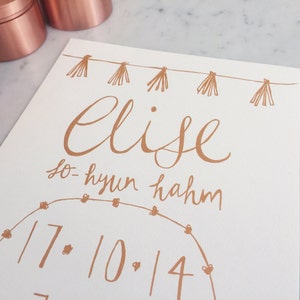 elise
so-hyun hahm
17•10•14